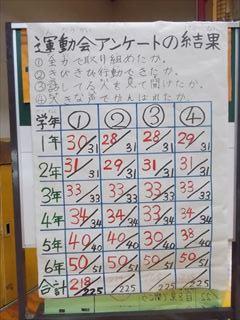 運動会アンケートの結果
①全力で取り組めたか。
②きびきび行動できたか。
③話してる人を見て聞けたか。
④大きな声でがんばれたか。
学年 ① ② ③ ④
1年 30/31 28/31 28/31 29/31
2年 31/31 29/31 31/31 31/31
3年 33/33 33/33 33/33 33/33
4年 34/34 34/34 33/34 34/34
5年 40/40 40/40 30/40 38/40
6年 50/51 50/51 50/51 50/51
合計 218/225 /225 /225 /225